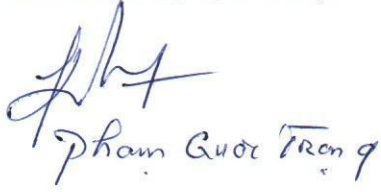 Phạm Quốc Trọng